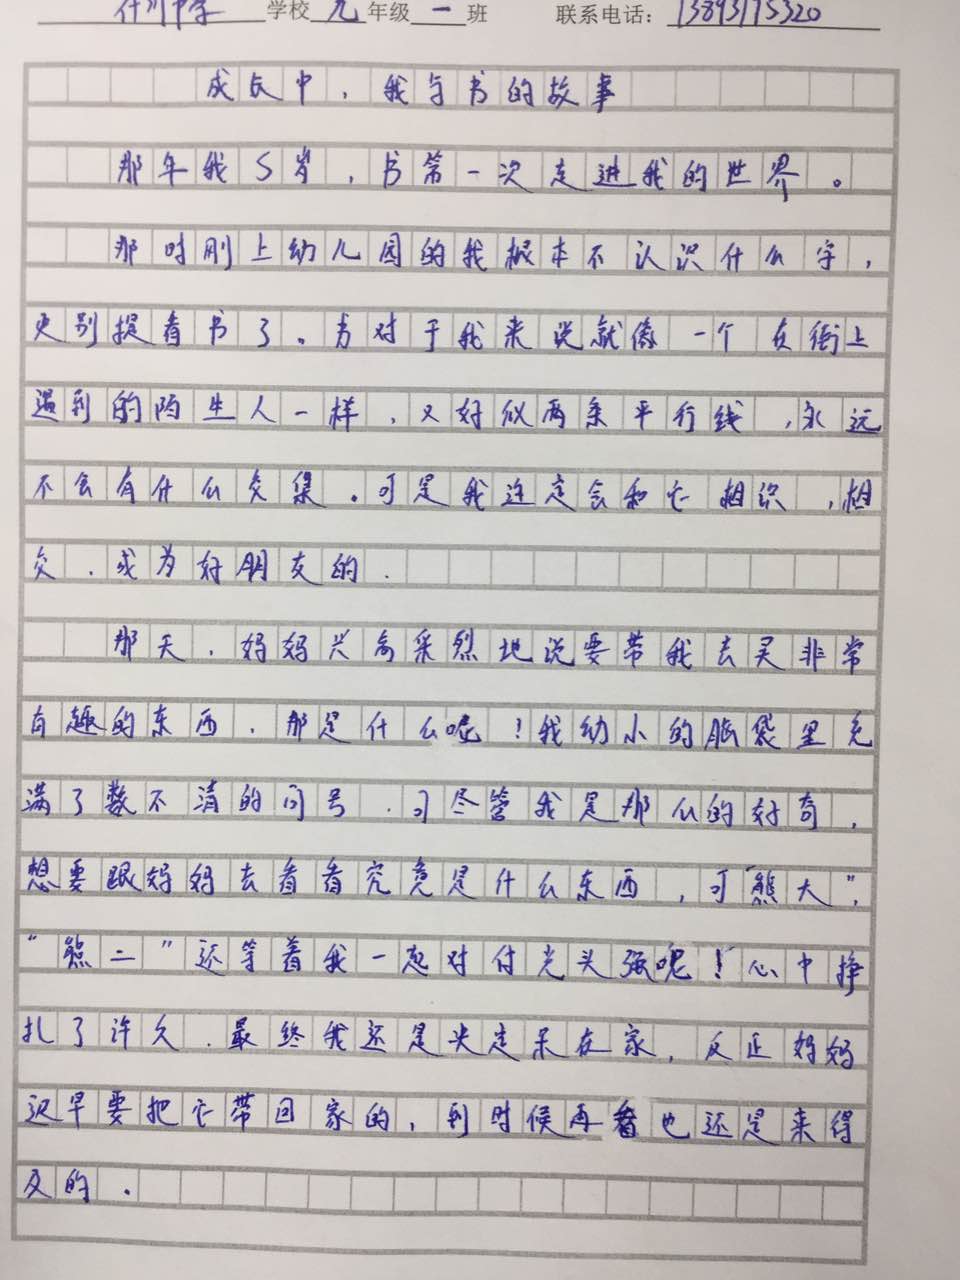 什川中学学校九年级一班 联系电话：13893175320
成长中，我与书的故事
那年我5岁，书第一次走进我的世界。
那时刚上幼儿园的我根本不认识什么字，
更别提看书了。书对于我来说就像一个在街上
遇到的陌生人一样，又好似两条平行线，永远
不会有什么交集。可是我注定会和它相识，相
交，成为好朋友的.
那天，妈妈兴高采烈地说要带我去买非常
有趣的东西，那是什么呢！我幼小的脑袋里充
满了数不清的问号.可尽管我是那么的好奇，
想要跟妈妈去看看究竟是什么东西，可“熊大”，
“熊二”还等着我一起对付光头强呢！心中挣
扎了许久.最终我还是决定呆在家，反正妈妈
迟早要把它带回家的，到时候再看也还是来得
及的.